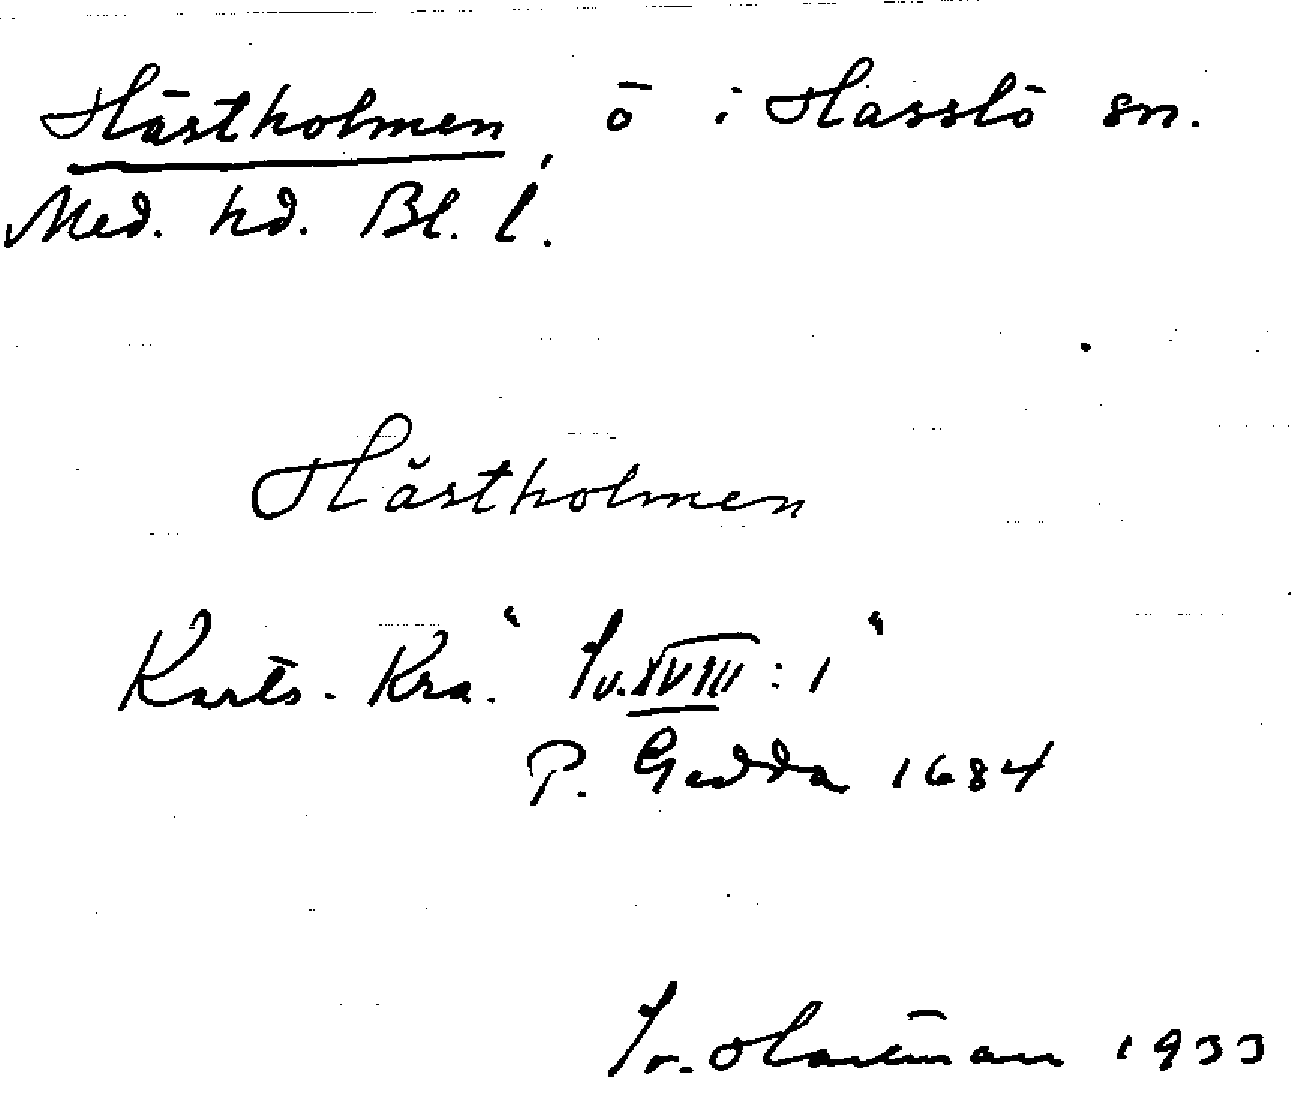 Hästholmen, ö i Hasslö sn.
Med. hd. Bl. l.
Hästholmen
Karts. Kra. "Sv. XVIII : 1"
P. Gedda 1684
Sv. Hartman 1933